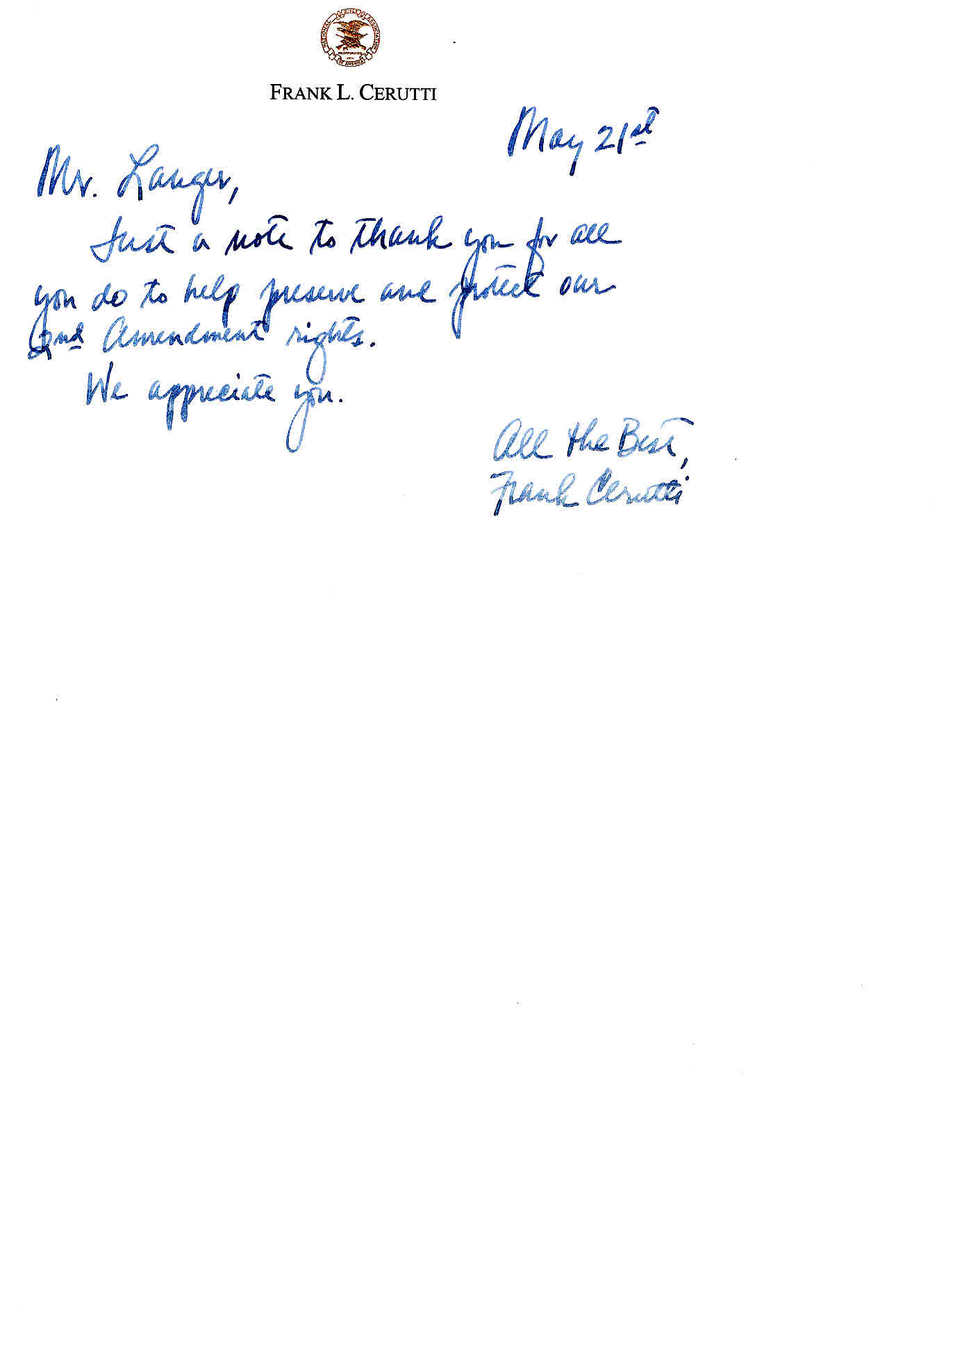 FRANK L. CERUTTI
May 21st
Mr. Langer,
Just a note to thank you for all
you do to help preserve and protect our
2nd Amendment rights.
We appreciate you.
All the Best,
Frank Cerutti